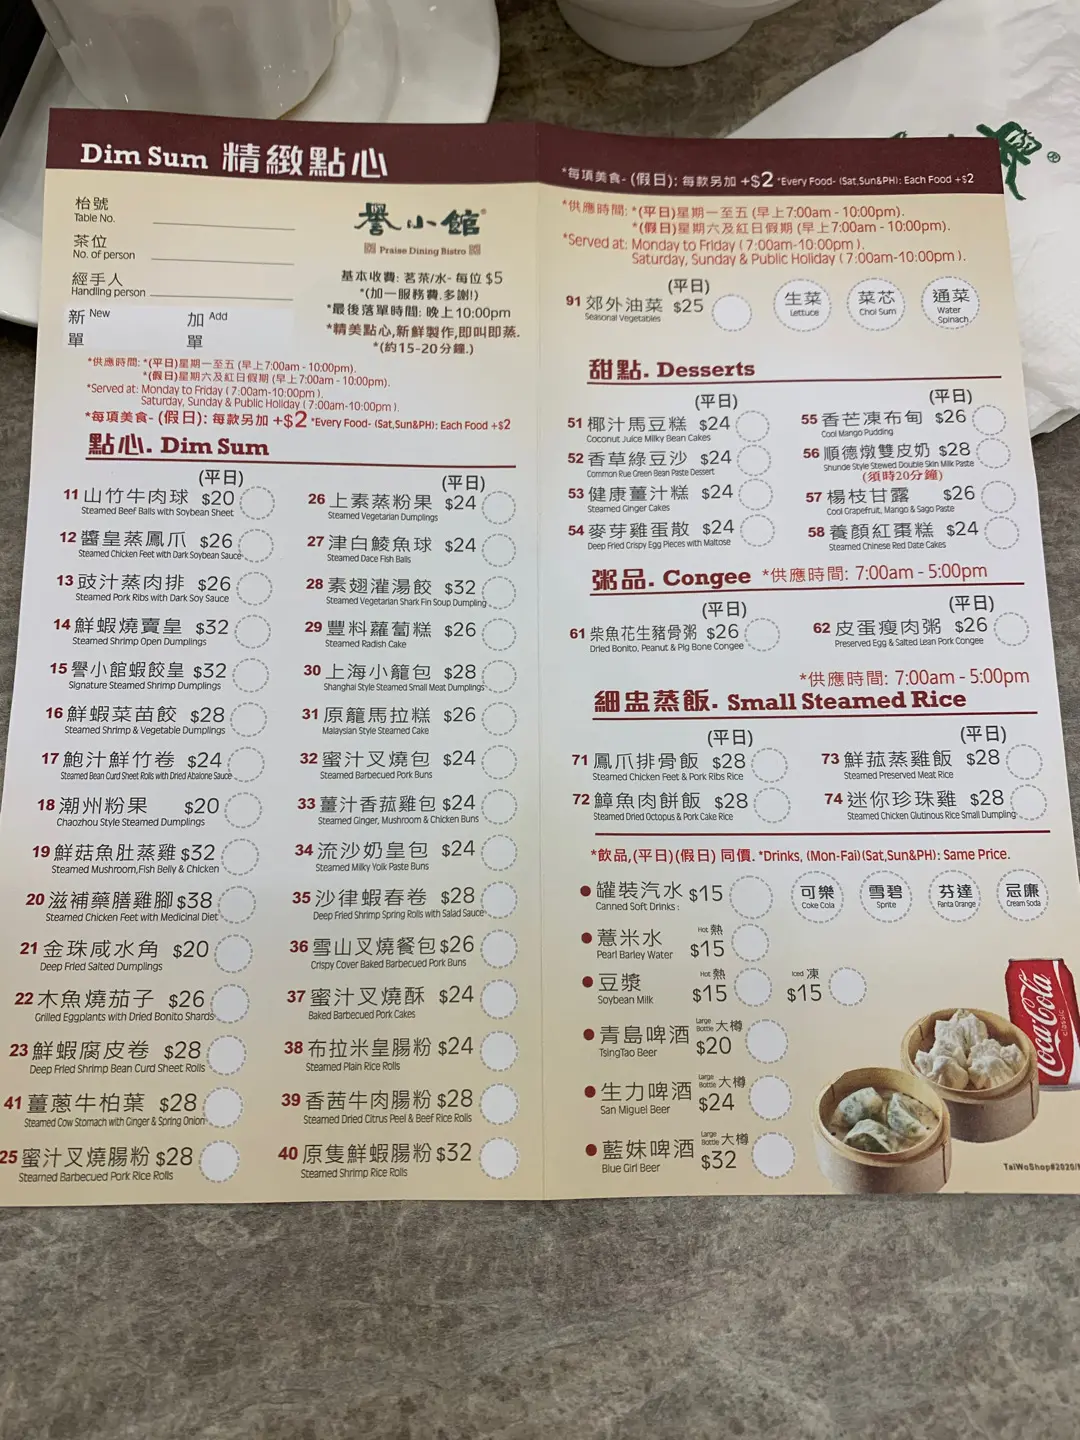 Dim Sum 精緻點心
枱號
Table No.
茶位
No. of person
經手人
Handling person
新單 New
加單 Add
譽小館®
Praise Dining Bistro
基本收費: 茗茶/水- 每位 $5
*(加一服務費.多謝!)
*最後落單時間: 晚上10:00pm
*精美點心,新鮮製作,即叫即蒸.
*(約15-20分鐘.)
*供應時間: *(平日)星期一至五 (早上7:00am - 10:00pm).
*(假日)星期六及紅日假期 (早上7:00am - 10:00pm).
*Served at: Monday to Friday ( 7:00am-10:00pm ).
Saturday, Sunday & Public Holiday ( 7:00am-10:00pm ).
*每項美食- (假日): 每款另加 +$2 *Every Food- (Sat,Sun&PH): Each Food +$2
點心. Dim Sum
(平日)
11 山竹牛肉球 $20
Steamed Beef Balls with Soybean Sheet
12 醬皇蒸鳳爪 $26
Steamed Chicken Feet with Dark Soybean Sauce
13 豉汁蒸肉排 $26
Steamed Pork Ribs with Dark Soy Sauce
14 鮮蝦燒賣皇 $32
Steamed Shrimp Open Dumplings
15 譽小館蝦餃皇 $32
Signature Steamed Shrimp Dumplings
16 鮮蝦菜苗餃 $28
Steamed Shrimp & Vegetable Dumplings
17 鮑汁鮮竹卷 $24
Steamed Bean Curd Sheet Rolls with Dried Abalone Sauce
18 潮州粉果 $20
Chaozhou Style Steamed Dumplings
19 鮮菇魚肚蒸雞 $32
Steamed Mushroom,Fish Belly & Chicken
20 滋補藥膳雞腳 $38
Steamed Chicken Feet with Medicinal Diet
21 金珠咸水角 $20
Deep Fried Salted Dumplings
22 木魚燒茄子 $26
Grilled Eggplants with Dried Bonito Shards
23 鮮蝦腐皮卷 $28
Deep Fried Shrimp Bean Curd Sheet Rolls
41 薑蔥牛柏葉 $28
Steamed Cow Stomach with Ginger & Spring Onion
25 蜜汁叉燒腸粉 $28
Steamed Barbecued Pork Rice Rolls
(平日)
26 上素蒸粉果 $24
Steamed Vegetarian Dumplings
27 津白鯪魚球 $24
Steamed Dace Fish Balls
28 素翅灌湯餃 $32
Steamed Vegetarian Shark Fin Soup Dumpling
29 豐料蘿蔔糕 $26
Steamed Radish Cake
30 上海小籠包 $28
Shanghai Style Steamed Small Meat Dumplings
31 原籠馬拉糕 $26
Malaysian Style Steamed Cake
32 蜜汁叉燒包 $24
Steamed Barbecued Pork Buns
33 薑汁香菰雞包 $24
Steamed Ginger, Mushroom & Chicken Buns
34 流沙奶皇包 $24
Steamed Milky Yolk Paste Buns
35 沙律蝦春卷 $28
Deep Fried Shrimp Spring Rolls with Salad Sauce
36 雪山叉燒餐包 $26
Crispy Cover Baked Barbecued Pork Buns
37 蜜汁叉燒酥 $24
Baked Barbecued Pork Cakes
38 布拉米皇腸粉 $24
Steamed Plain Rice Rolls
39 香茜牛肉腸粉 $28
Steamed Dried Citrus Peel & Beef Rice Rolls
40 原隻鮮蝦腸粉 $32
Steamed Shrimp Rice Rolls
*每項美食- (假日): 每款另加 +$2 *Every Food- (Sat,Sun&PH): Each Food +$2
*供應時間: *(平日)星期一至五 (早上7:00am - 10:00pm).
*(假日)星期六及紅日假期 (早上7:00am - 10:00pm).
*Served at: Monday to Friday ( 7:00am-10:00pm ).
Saturday, Sunday & Public Holiday ( 7:00am-10:00pm ).
(平日)
91 郊外油菜 $25
Seasonal Vegetables
生菜
Lettuce
菜芯
Choi Sum
通菜
Water
Spinach
甜點. Desserts
(平日)
51 椰汁馬豆糕 $24
Coconut Juice Milky Bean Cakes
52 香草綠豆沙 $24
Common Rue Green Bean Paste Dessert
53 健康薑汁糕 $24
Steamed Ginger Cakes
54 麥芽雞蛋散 $24
Deep Fried Crispy Egg Pieces with Maltose
(平日)
55 香芒凍布甸 $26
Cool Mango Pudding
56 順德燉雙皮奶 $28
Shunde Style Stewed Double Skin Milk Paste
(須時20分鐘)
57 楊枝甘露 $26
Cool Grapefruit, Mango & Sago Paste
58 養顏紅棗糕 $24
Steamed Chinese Red Date Cakes
粥品. Congee *供應時間: 7:00am - 5:00pm
(平日)
61 柴魚花生豬骨粥 $26
Dried Bonito, Peanut & Pig Bone Congee
(平日)
62 皮蛋瘦肉粥 $26
Preserved Egg & Salted Lean Pork Congee
*供應時間: 7:00am - 5:00pm
細盅蒸飯. Small Steamed Rice
(平日)
71 鳳爪排骨飯 $28
Steamed Chicken Feet & Pork Ribs Rice
72 鱆魚肉餅飯 $28
Steamed Dried Octopus & Pork Cake Rice
(平日)
73 鮮菰蒸雞飯 $28
Steamed Preserved Meat Rice
74 迷你珍珠雞 $28
Steamed Chicken Glutinous Rice Small Dumpling
*飲品,(平日)(假日) 同價. *Drinks, (Mon-Fai)(Sat,Sun&PH): Same Price.
罐裝汽水 $15
Canned Soft Drinks :
可樂
Coke Cola
雪碧
Sprite
芬達
Fanta Orange
忌廉
Cream Soda
薏米水 Hot 熱 $15
Pearl Barley Water
豆漿 Hot 熱 $15 Iced 凍 $15
Soybean Milk
青島啤酒 Large Bottle 大樽 $20
TsingTao Beer
生力啤酒 Large Bottle 大樽 $24
San Miguel Beer
藍妹啤酒 Large Bottle 大樽 $32
Blue Girl Beer
Coca-Cola
classic